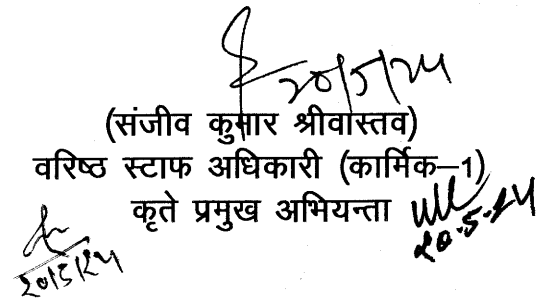 20/5/24
(संजीव कुमार श्रीवास्तव)
वरिष्ठ स्टाफ अधिकारी (कार्मिक–1)
कृते प्रमुख अभियन्ता
20.5.24
20/5/24